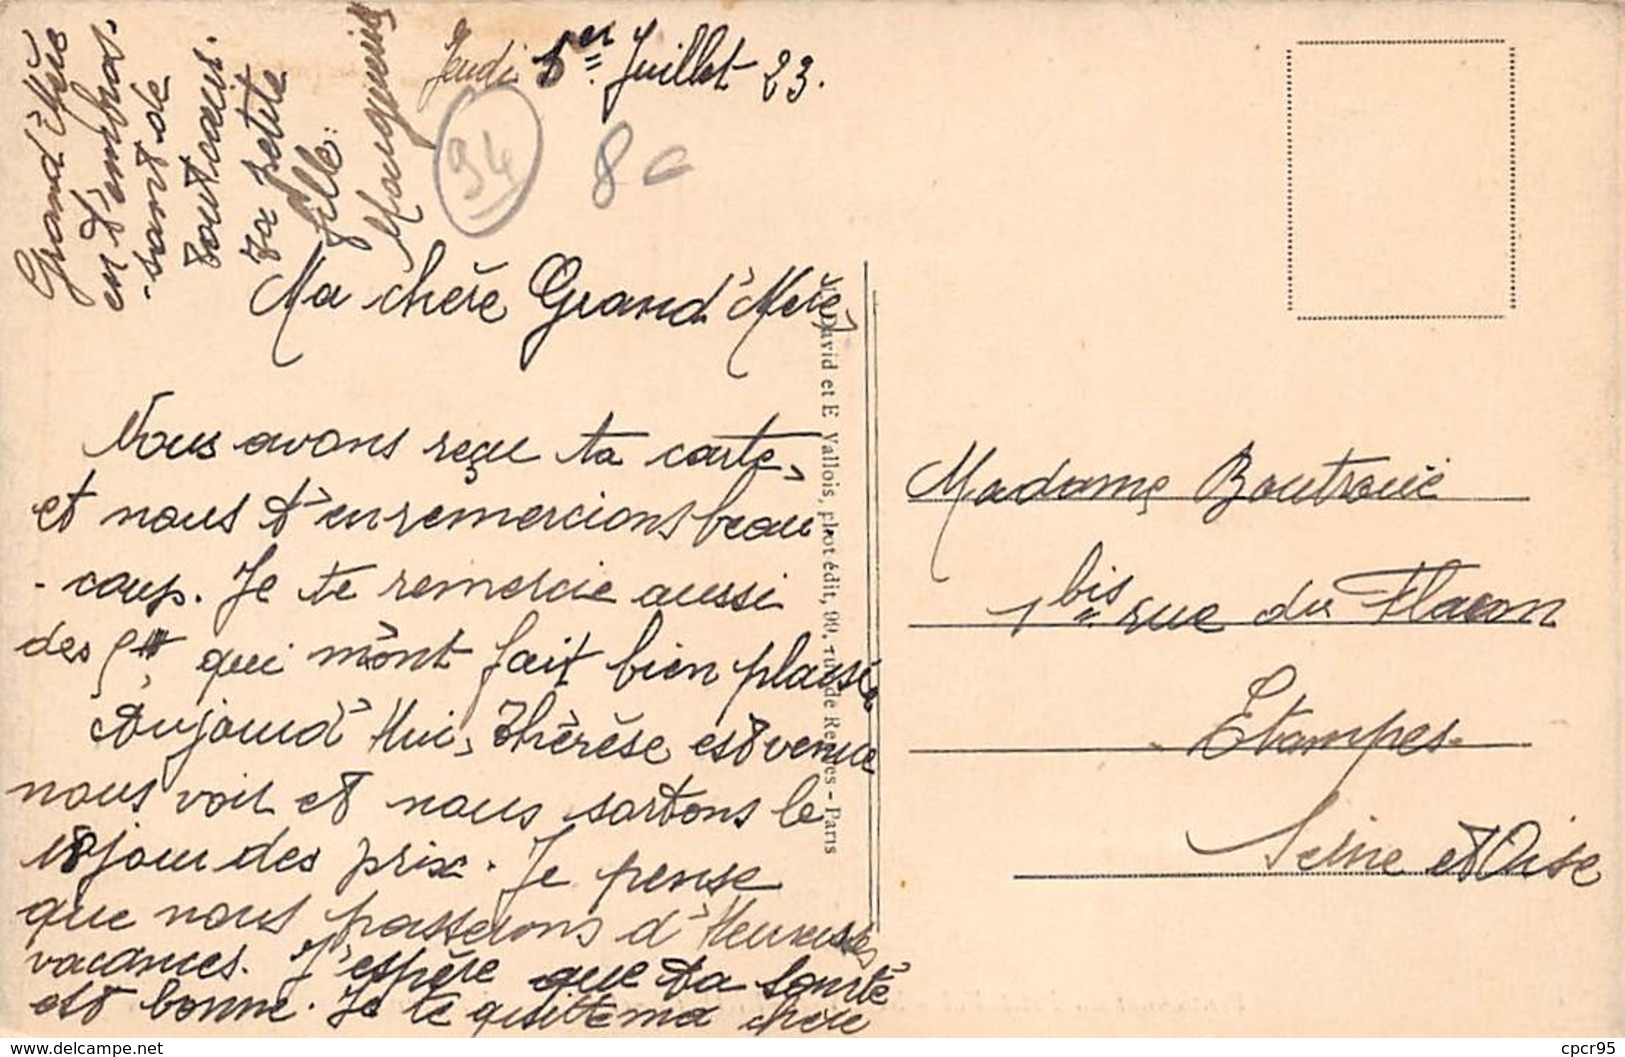 Jeudi 5er Juillet 23.
94
8
Ma chère Grand'Mère,
Nous avons reçu ta carte,
et nous t'en remercions beau
-coup. Je te remercie aussi
des qui m'ont fait bien plaisir
Aujourd'Hui, Thérèse est venue
nous voir et nous sortons le
18 jour des prix. Je pense
que nous passerons d'Heureuses
vacances. J'espère que ta santé
est bonne. Je te quitte ma chère
Grand'Mère
en t'embras-
-sant de
tout cœur.
Ta petite
fille:
Marguerite
David et E Vallois, phot-édit, 99, rue de Rennes - Paris
Madame Boutroüe
1 bis rue du Flacon
Etampes
Seine et Oise
cpcr95